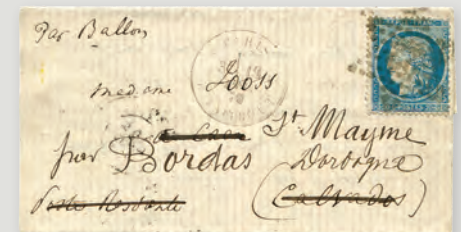 Par Ballon
PARIS
Madame Looss
St. Mayme
par Bordas Dordogne
Poste Restante (Calvados)